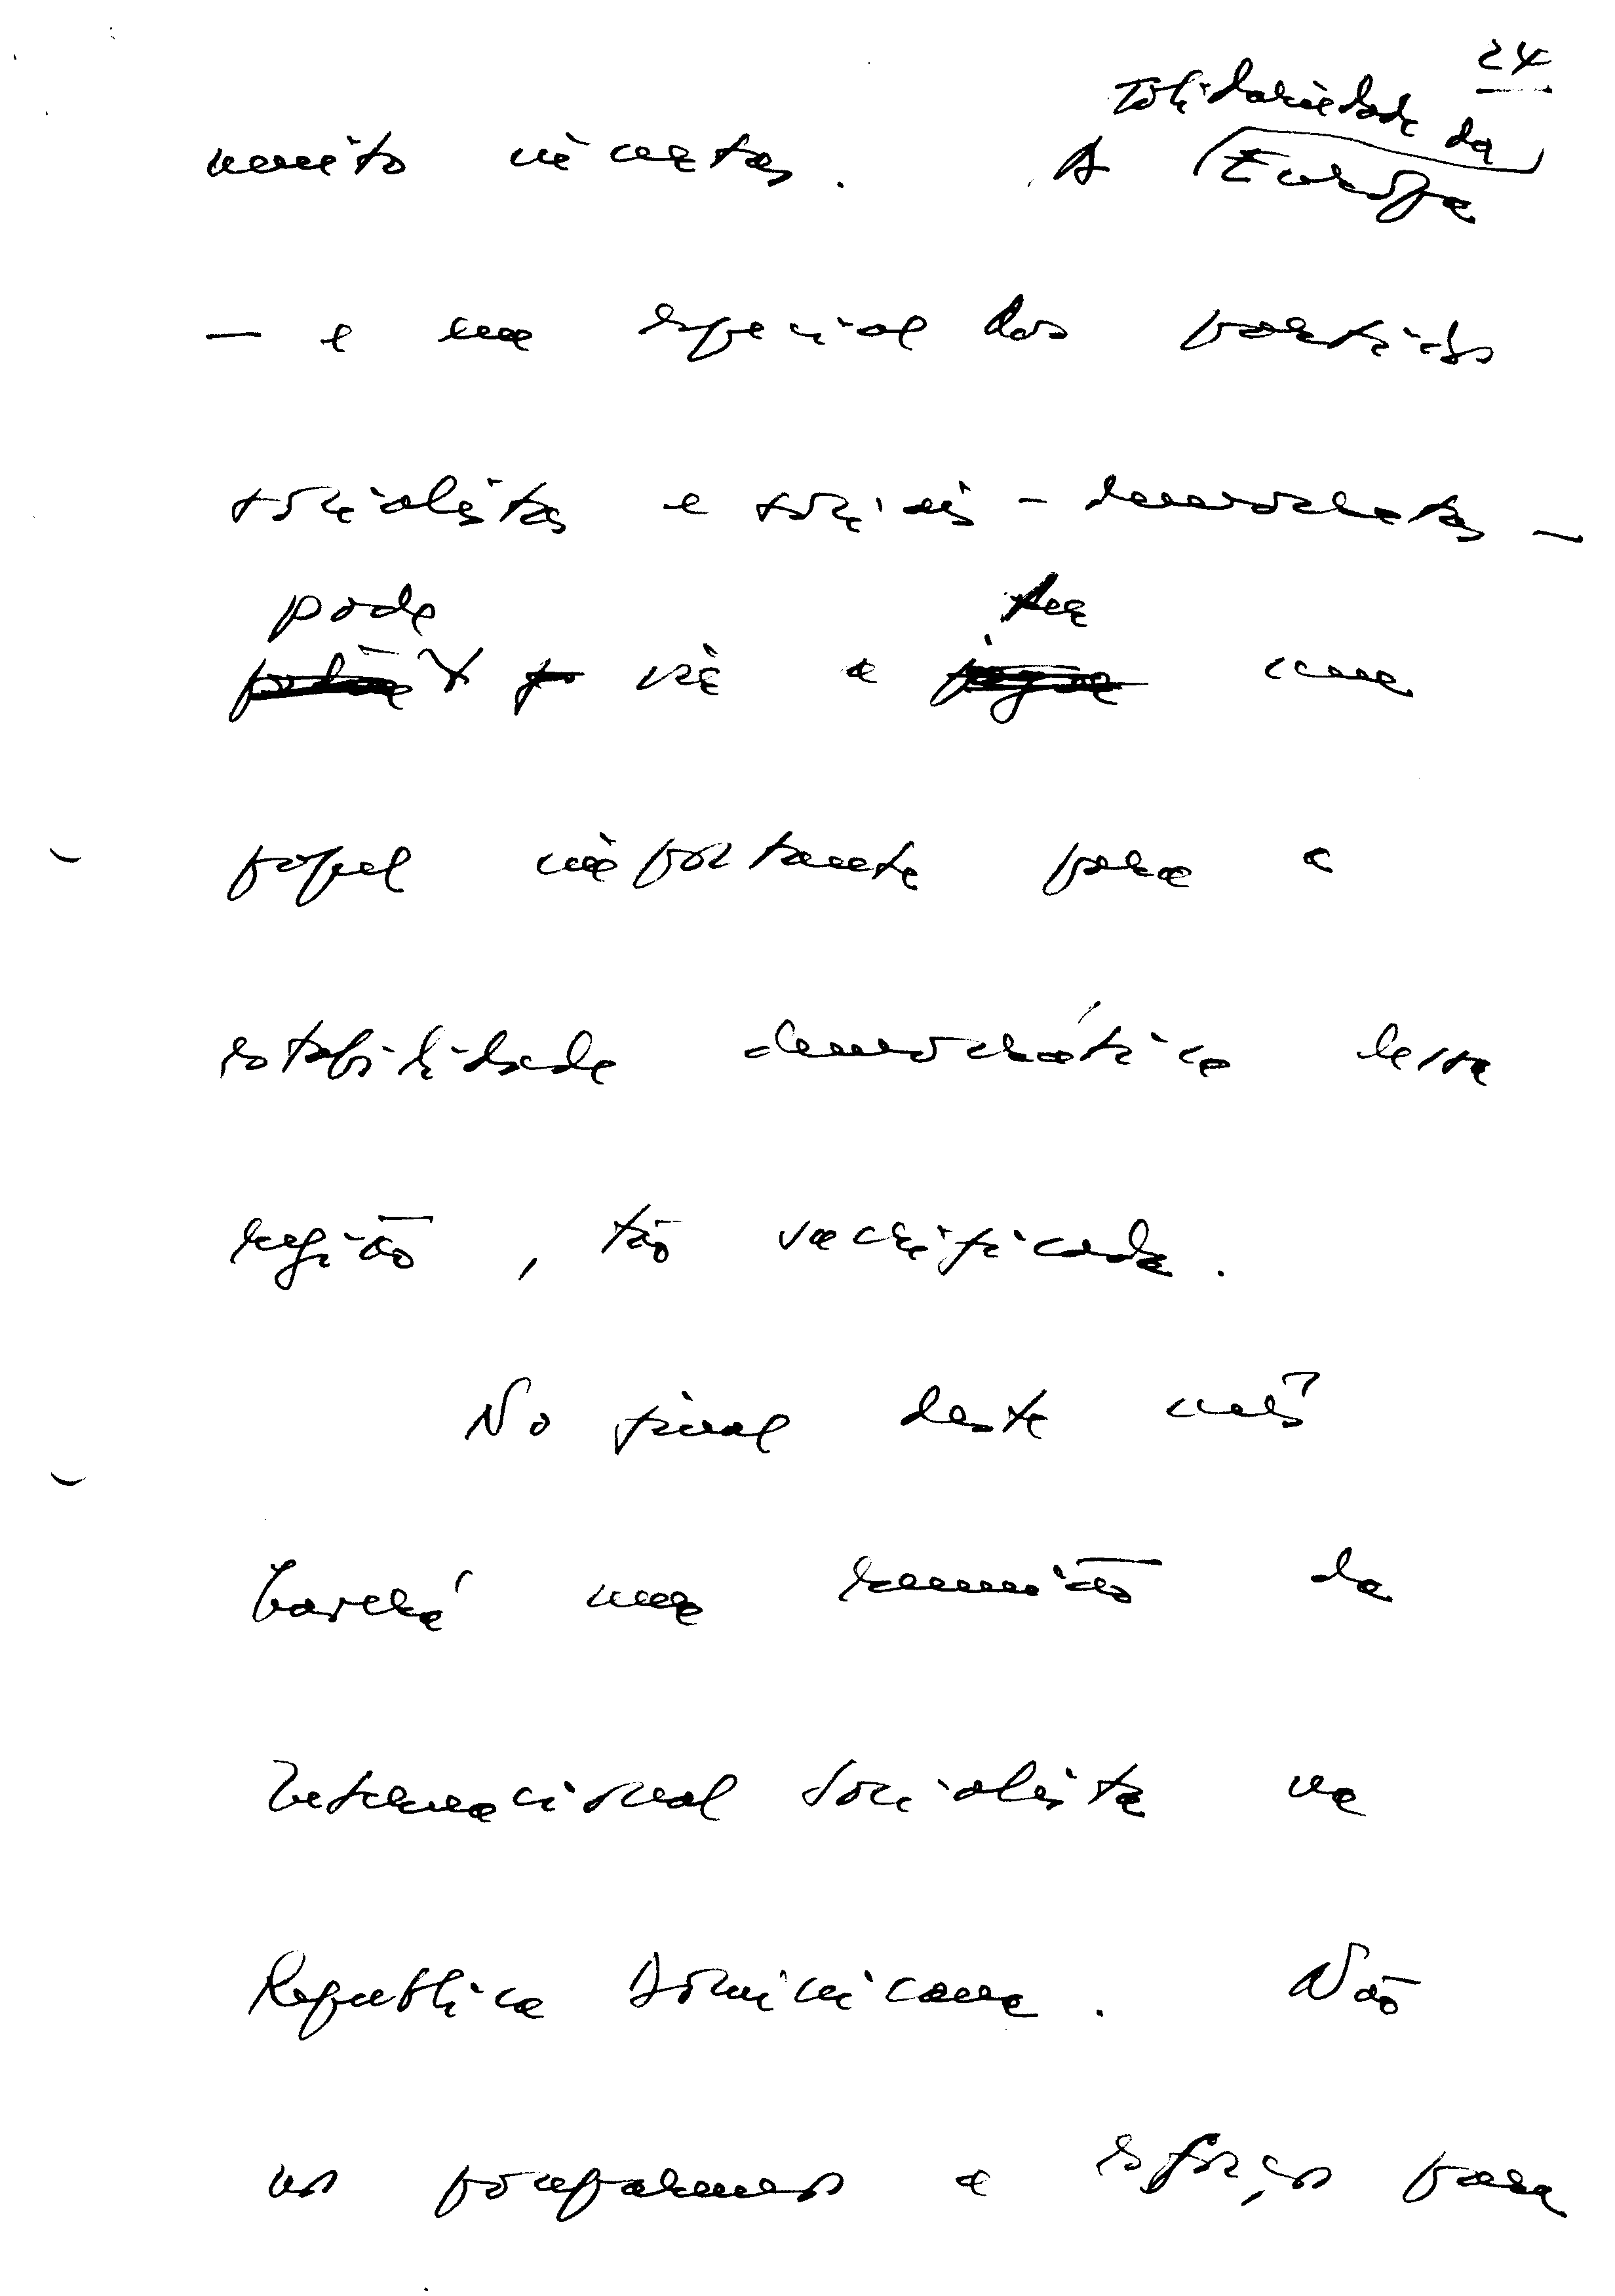 24
muito incertas. A solidariedade da Europa
— e em especial dos partidos
socialistas e sociais-democratas —
pode vir a ter um
papel importante para a
estabilidade democrática dessa
região, tão sacrificada.
No final deste mês
haverá uma reunião da
Internacional Socialista na
Republica Dominicana. Não
nos pouparemos a esforços para